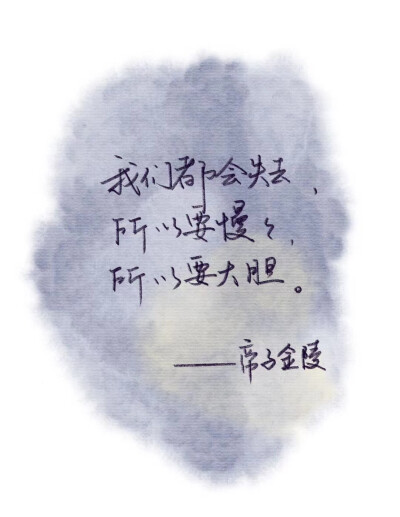 我们都会失去，
所以要慢々，
所以要大胆。
——帝子金陵